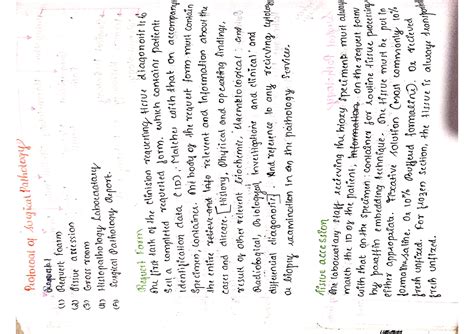 Protocol of Surgical Pathology
Request
(1) Request foarm
(2) Tissue accession
(3) Gross room
(4) Histopathology Labouratory
(5) Surgical Pathology Report.
Request Form
The first task of the clinician requesting tissue diagnosis is to
sent a completed requested form, which contains patient
identification date (ID). Matches with that on accompany
specimen, container. The body of the request form must contain
the entire relevant and Information about the
case and disease [History, Physical and operating finding,
result of other relevant Biochemic. Haematological and
Radiological, Investigations and clinical and
differential diagnosis]. And reference to any recieving cytology
or Biopsy examination in the pathology Services.
Tissue accession
The laboratory staff recieving the biopsy specimens must always
match the ID of the patient, on the request form
with that on the specimen container for routine tissue processing
by paraffin embedding technique. The tissue must be put to
either appropriate fixative solution (most commonly 10%
formaldehyde. Or 10% Buffered formalin). Or recieved
fresh unfixed. For frozen section, the tissue is always
fresh unfixed.